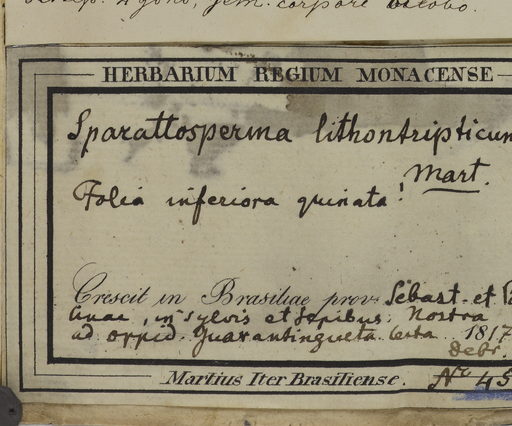 4gono, gem. corpore
HERBARIUM REGIUM MONACENSE
Sparattosperma lithontripticum
Mart.
Folia inferiora quinata!
Crescit in Brasiliae prov. Sebast. et
linae, in sylvis et sepibus. Nostra
ad oppid. Guarantingueta lecta. 1817
Debr.
Martius Iter Brasiliense. No 45